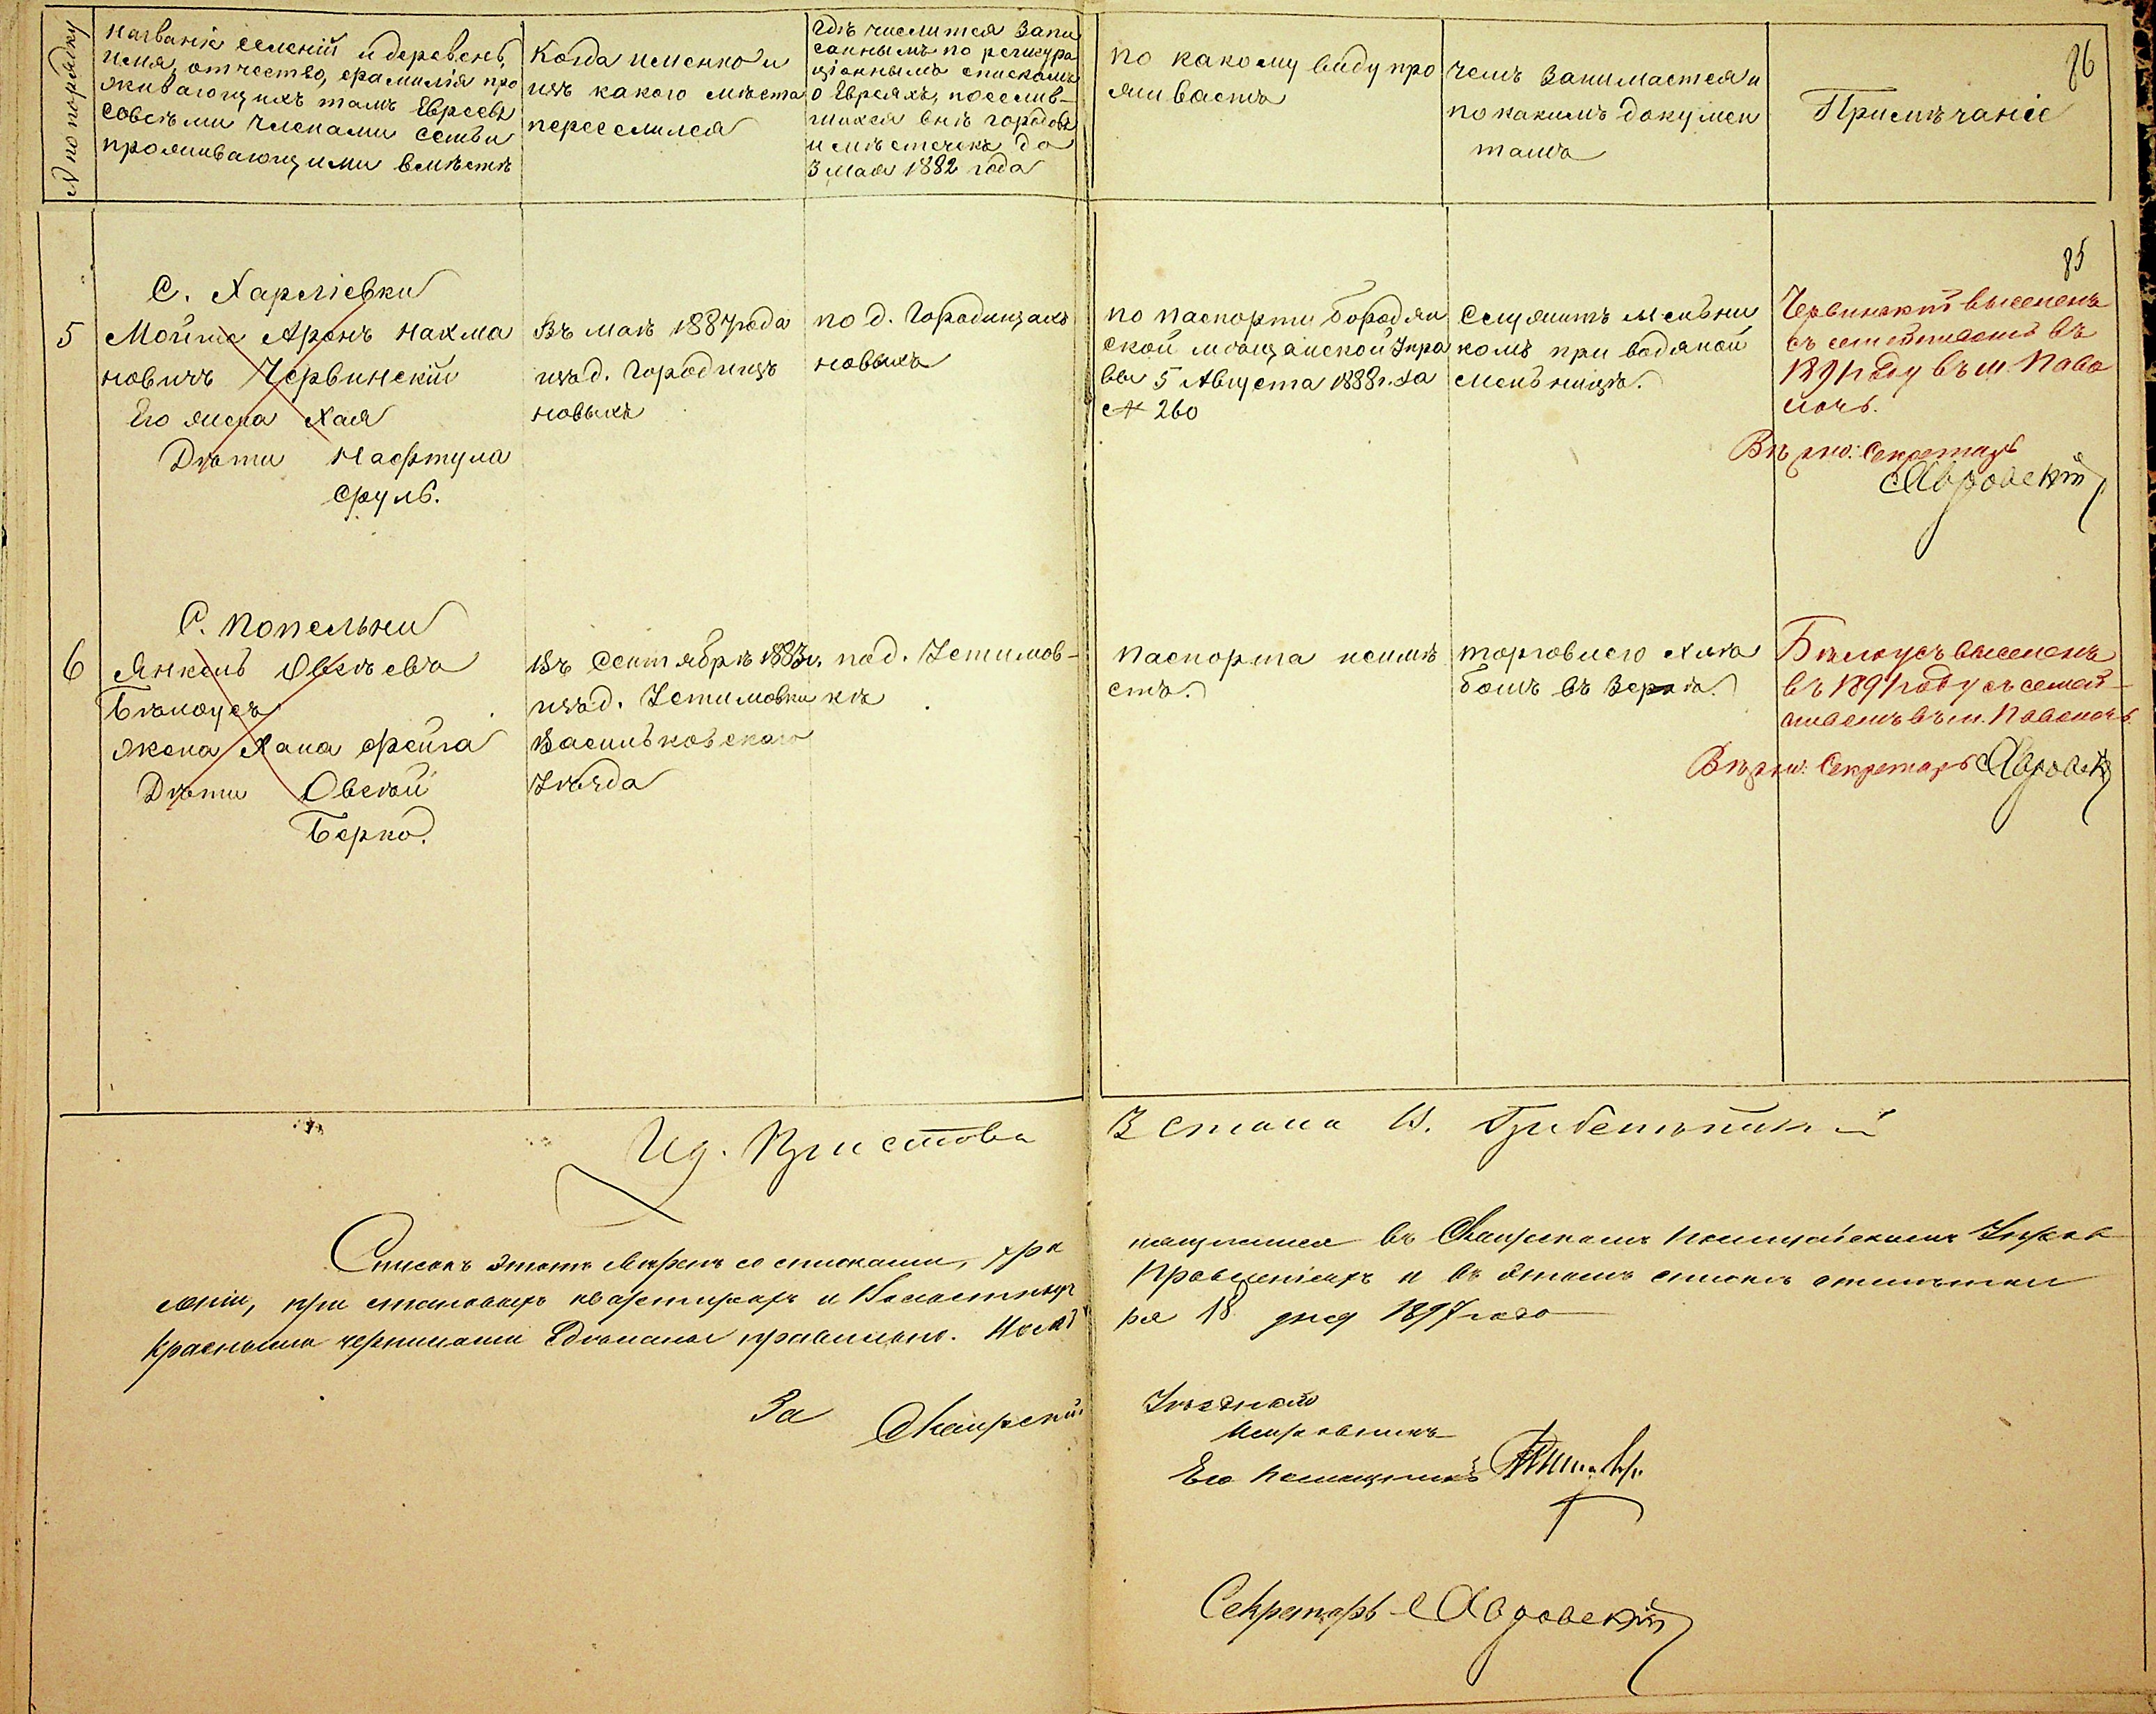 № по порядку
Названіе селеній и деревень,
имя, отчество, фамилія про
живающихъ тамъ Евреевъ
совсѣми членами семьи
проживающими вмѣстѣ
Когда именно и
изъ какого мѣста
переселился
Гдѣ числится запи
саннымъ по регистра
ціоннымъ спискамъ
о Евреяхъ, поселив-
шихся внѣ городовъ
и мѣстечекъ до
3 мая 1882 года
по какому виду про
живаетъ
чемъ занимается и
по какимъ докумен
тамъ
Примѣчаніе
86
85
С. Харліевки
5
Мойше Аронъ Нахма
новичъ Червинскій
Его жена Хая
Дѣти Нафтула
Сруль.
Въ маѣ 1887 года
изъ д. Городищъ
новыхъ
по д. Городищахъ
новыхъ
по паспорту Бородян
ской мѣщанской Упра
вы 5 Августа 1888 г. за
№ 260
Служитъ мельни
комъ при водяной
мельницѣ.
Червинскій выселенъ
съ семействомъ въ
1891 году въ м. Паво
лочь.
Вѣрно: Секретарь
С. Попельни
6
Янкель Овсѣевъ
Бѣлоусъ
жена Хана Фейга
Дѣти Овсѣй
Берко.
Въ Сентябрѣ 1883 г.
изъ д. Устимовки
Васильковскаго
Уѣзда
по д. Устимов-
кѣ
Паспорта неимѣ
етъ.
торговлею хлѣ
бомъ въ зернѣ.
Бѣлоусъ выселенъ
въ 1891 году съ семей-
ствомъ въ м. Паволочь.
Вѣрно: Секретарь
Ид. Пристава 3 стана
Списокъ этотъ вѣренъ со списками, хра
нящимися въ Сквирскомъ Полицейскомъ Управ
леніи, при становыхъ квартирахъ и Волостныхъ
Правленіяхъ и въ этомъ списка отмѣтки
красными чернилами сдѣланы правильно. Нояб
ря 18 дня 1897 года
За Сквирскій
Уѣзднаго
Исправника
Его Помощникъ
Секретарь